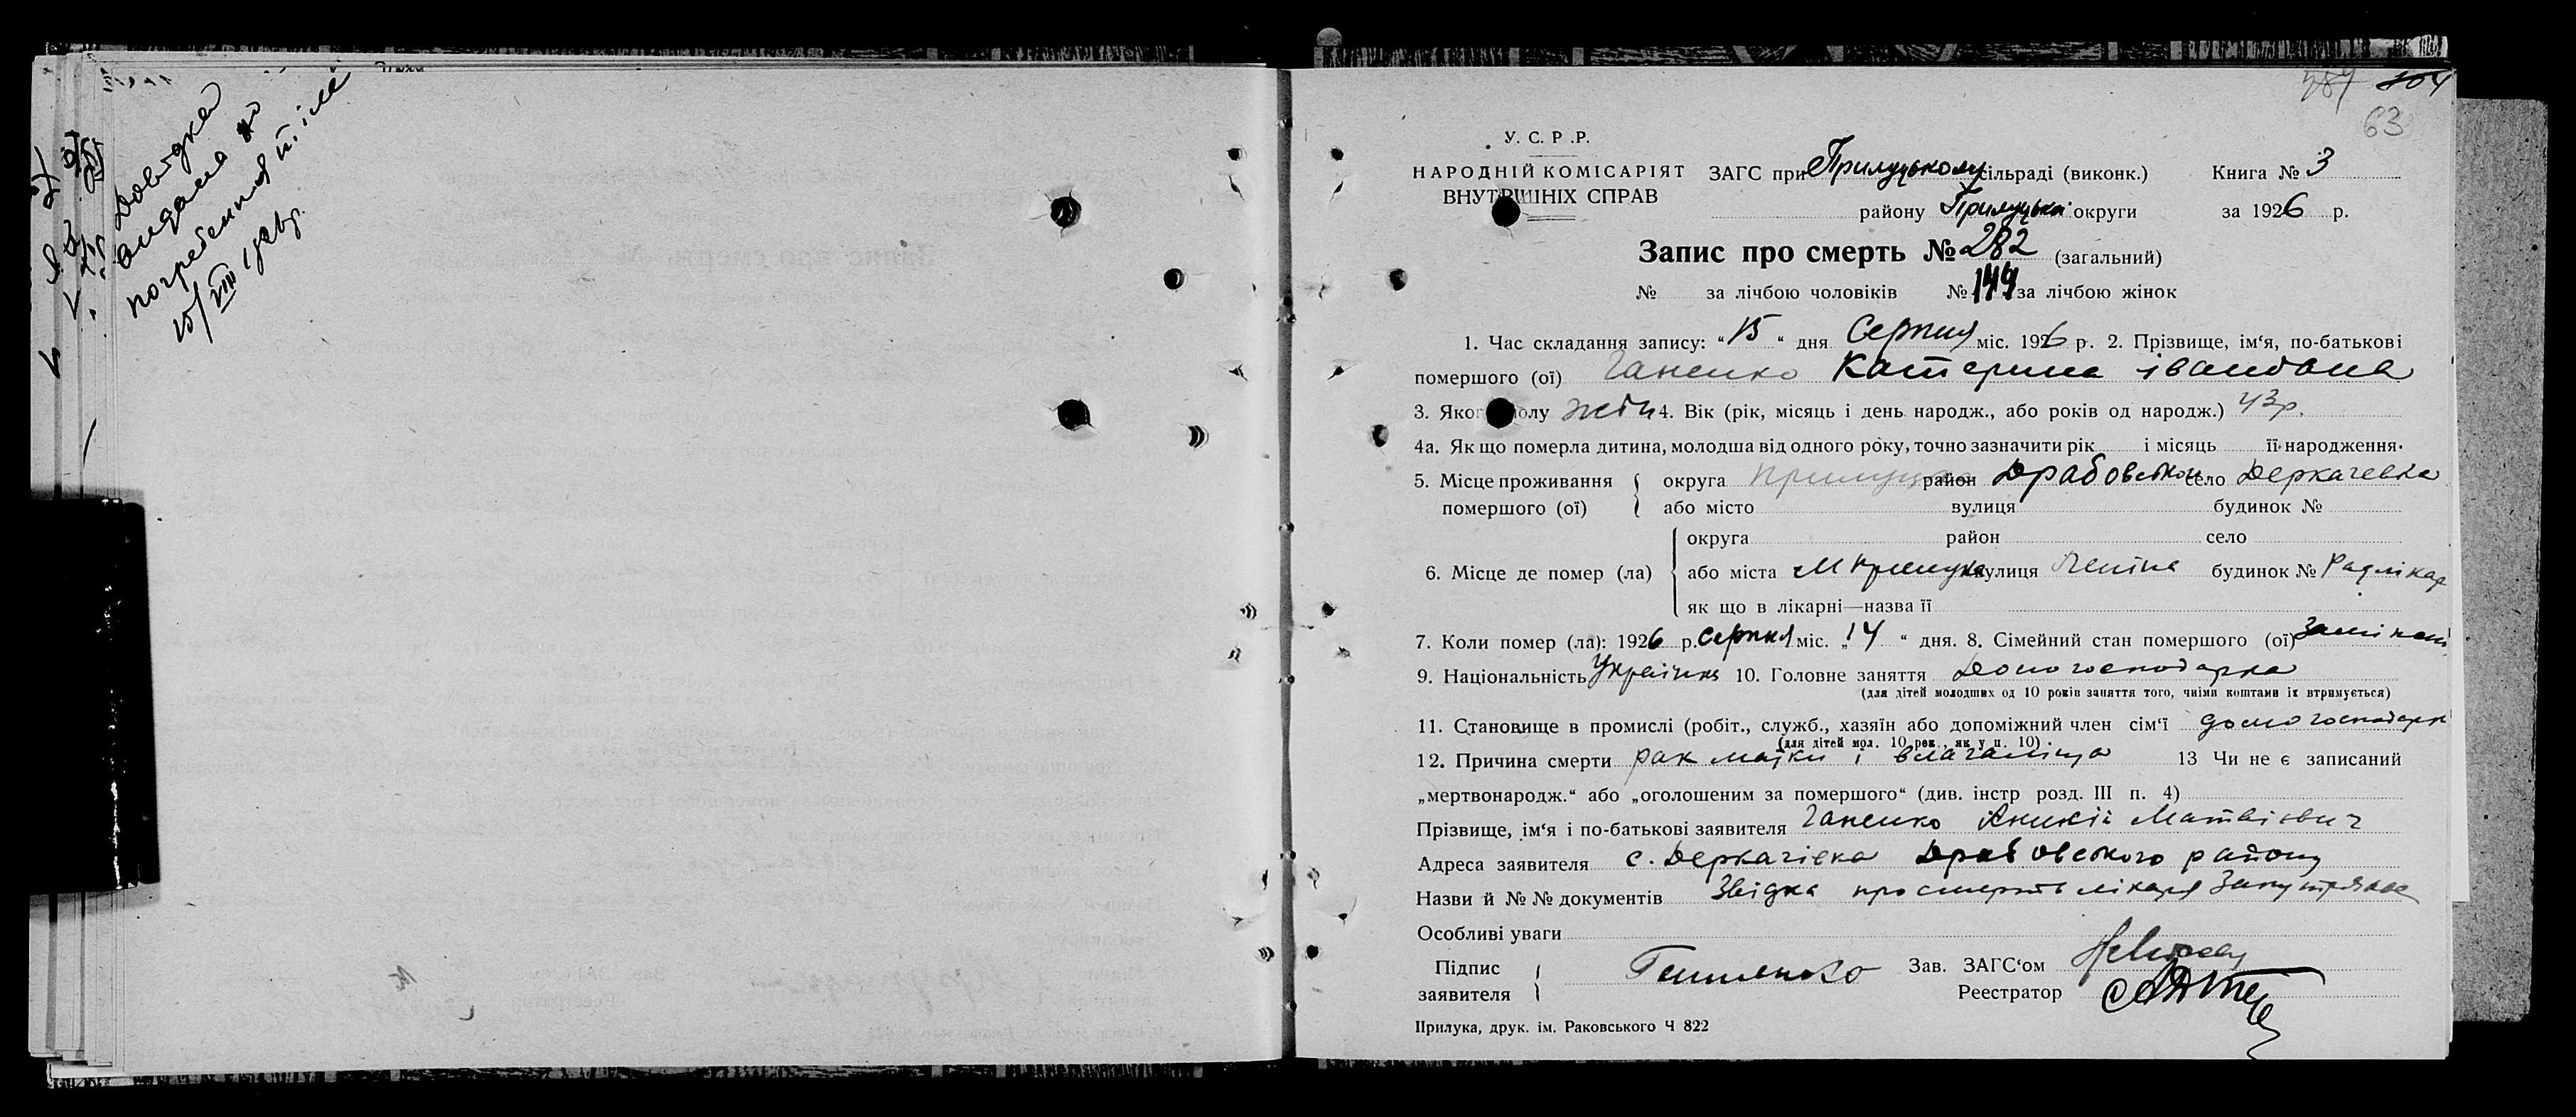 Довідка
видана на
погребення тіла
15/VIII 1926р.
287 304
63
У. С. Р. Р.
НАРОДНІЙ КОМІСАРІЯТ
ВНУТРІШНІХ СПРАВ
ЗАГС при Прилуцькому сільраді (виконк.) Книга № 3
району Прилуцької округи за 1926 р.
Запис про смерть № 282 (загальний)
№ за лічбою чоловіків № 144 за лічбою жінок
1. Час складання запису: “ 15 “ дня Серпня міс. 1926 р. 2. Прізвище, ім‘я, по-батькові
помершого (ої) Ганенко Катерина івановна
3. Якого полу жін 4. Вік (рік, місяць і день народж., або років од народж.) 43р.
4а. Як що померла дитина, молодша від одного року, точно зазначити рік і місяць її народження.
5. Місце проживання помершого (ої) округа Прилуцька район Драбовський село Деркачевка
або місто вулиця будинок №
6. Місце де помер (ла) округа район село
або міста м Прилука вулиця Леніна будинок № Радлікар
як що в лікарні—назва її
7. Коли помер (ла): 1926 р. серпня міс. „14 “ дня. 8. Сімейний стан помершого (ої) Заміжня
9. Національність Українка 10. Головне заняття Домогосподарка
(для дітей молодших од 10 років заняття того, чиїми коштами їх втримується)
11. Становище в промислі (робіт., служб., хазяїн або допоміжний член сім‘ї домогосподарк
(для дітей мол. 10 рок., як у п. 10)
12. Причина смерти рак матки і влагаліща 13 Чи не є записаний
„мертвонародж.“ або „оголошеним за помершого“ (див. інстр розд. III п. 4)
Прізвище, ім‘я і по-батькові заявителя Ганенко Аникій Матвієвич
Адреса заявителя с. Деркачівка Драбовського району
Назви й №№ документів Звідка про смерть лікаря
Особливі уваги
Підпис заявителя Зав. ЗАГС‘ом
Реестратор
Прилука, друк. ім. Раковського Ч 822